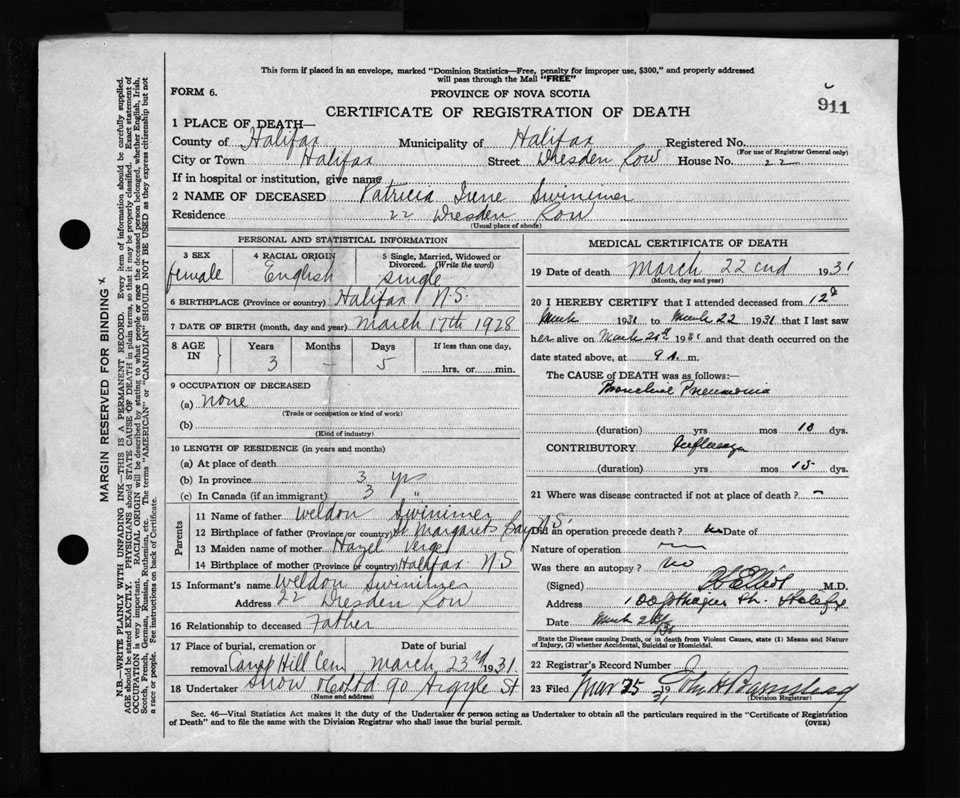 This form if placed in an envelope, marked "Dominion Statistics—Free, penalty for improper use, $300," and properly addressed
will pass through the Mail "FREE"
FORM 6.
PROVINCE OF NOVA SCOTIA
911
CERTIFICATE OF REGISTRATION OF DEATH
1 PLACE OF DEATH—
County of Halifax Municipality of Halifax Registered No.
(For use of Registrar General only)
City or Town Halifax Street Dresden Row House No. 22
If in hospital or institution, give name
2 NAME OF DECEASED Patricia Irene Swinimer
Residence 22 Dresden Row
(Usual place of abode)
PERSONAL AND STATISTICAL INFORMATION
3 SEX 4 RACIAL ORIGIN 5 Single, Married, Widowed or
Divorced. (Write the word)
female English single
6 BIRTHPLACE (Province or country) Halifax N.S.
7 DATE OF BIRTH (month, day and year) March 17th 1928
8 AGE IN Years Months Days If less than one day,
3 – 5 hrs. or min.
9 OCCUPATION OF DECEASED
(a) none
(Trade or occupation or kind of work)
(b)
(Kind of industry)
10 LENGTH OF RESIDENCE (in years and months)
(a) At place of death
(b) In province 3 yrs
(c) In Canada (if an immigrant) 3 "
Parents
11 Name of father Weldon Swinimer
12 Birthplace of father (Province or country) St Margarets Bay N.S.
13 Maiden name of mother Hazel Verge
14 Birthplace of mother (Province or country) Halifax N.S
15 Informant's name Weldon Swinimer
Address 22 Dresden Row
16 Relationship to deceased Father
17 Place of burial, cremation or Date of burial
removal Camp Hill Cem March 23rd 1931
18 Undertaker Snow & Co Ltd 90 Argyle St
(Name and address)
MEDICAL CERTIFICATE OF DEATH
19 Date of death March 22nd 1931
(Month, day and year)
20 I HEREBY CERTIFY that I attended deceased from 12th
March 1931 to March 22 1931 that I last saw
her alive on March 1931 and that death occurred on the
date stated above, at 9 A. m.
The CAUSE of DEATH was as follows:—
Bronchial Pneumonia
(duration) yrs mos 10 dys.
CONTRIBUTORY Influenza
(duration) yrs mos 15 dys.
21 Where was disease contracted if not at place of death? –
Did an operation precede death? no Date of
Nature of operation
Was there an autopsy? no
(Signed) Elliot M.D.
Address St. Halifax
Date March
State the Disease causing Death, or in death from Violent Causes, state (1) Means and Nature
of Injury, (2) whether Accidental, Suicidal or Homicidal.
22 Registrar's Record Number
23 Filed Mar 25 1931 John H Barnstead
(Division Registrar)
Sec. 46—Vital Statistics Act makes it the duty of the Undertaker or person acting as Undertaker to obtain all the particulars required in the "Certificate of Registration
of Death" and to file the same with the Division Registrar who shall issue the burial permit.
(OVER)
MARGIN RESERVED FOR BINDING
N.B.—WRITE PLAINLY WITH UNFADING INK—THIS IS A PERMANENT RECORD. Every item of information should be carefully supplied.
AGE should be stated EXACTLY. PHYSICIANS should STATE CAUSE OF DEATH in plain terms, so that it may be properly classified. Exact statement of
OCCUPATION is very important. RACIAL ORIGIN will be described by stating to what people or race the deceased person belonged, whether English, Irish,
Scotch, French, German, Russian, Ruthenian, etc. The terms "AMERICAN" or "CANADIAN" SHOULD NOT BE USED as they express citizenship but not
a race or people. See instructions on back of Certificate.